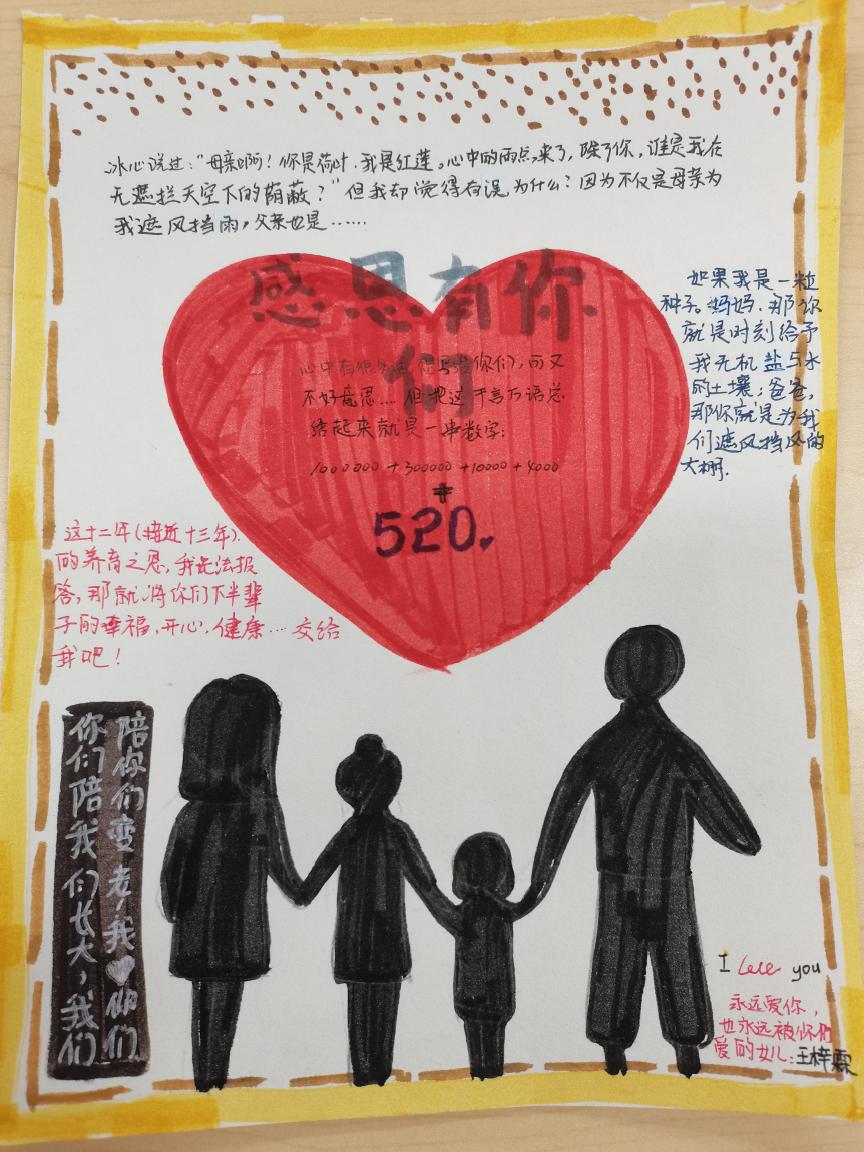 冰心说过：“母亲啊！你是荷叶，我是红莲。心中的雨点来了，除了你，谁是我在
无遮拦天空下的荫蔽？”但我却觉得有误，为什么？因为不仅是母亲为
我遮风挡雨，父亲也是……
感恩有你
们
心中有很多话想写给你们，而又
不好意思…但把这千言万语总
结起来就是一串数字：
1000000+300000+10000+4000
≠
520
如果我是一粒
种子。妈妈，那你
就是时刻给予
我无机盐与水
的土壤；爸爸，
那你就是为我
们遮风挡风的
大棚.
这十二年(接近十三年)
的养育之恩，我无法报
答，那就将你们下半辈
子的幸福，开心，健康…交给
我吧！
你们陪我们长大，我们
陪你们变老，我♥你们
I love you
永远爱你，
也永远被你们
爱的女儿：王梓霖